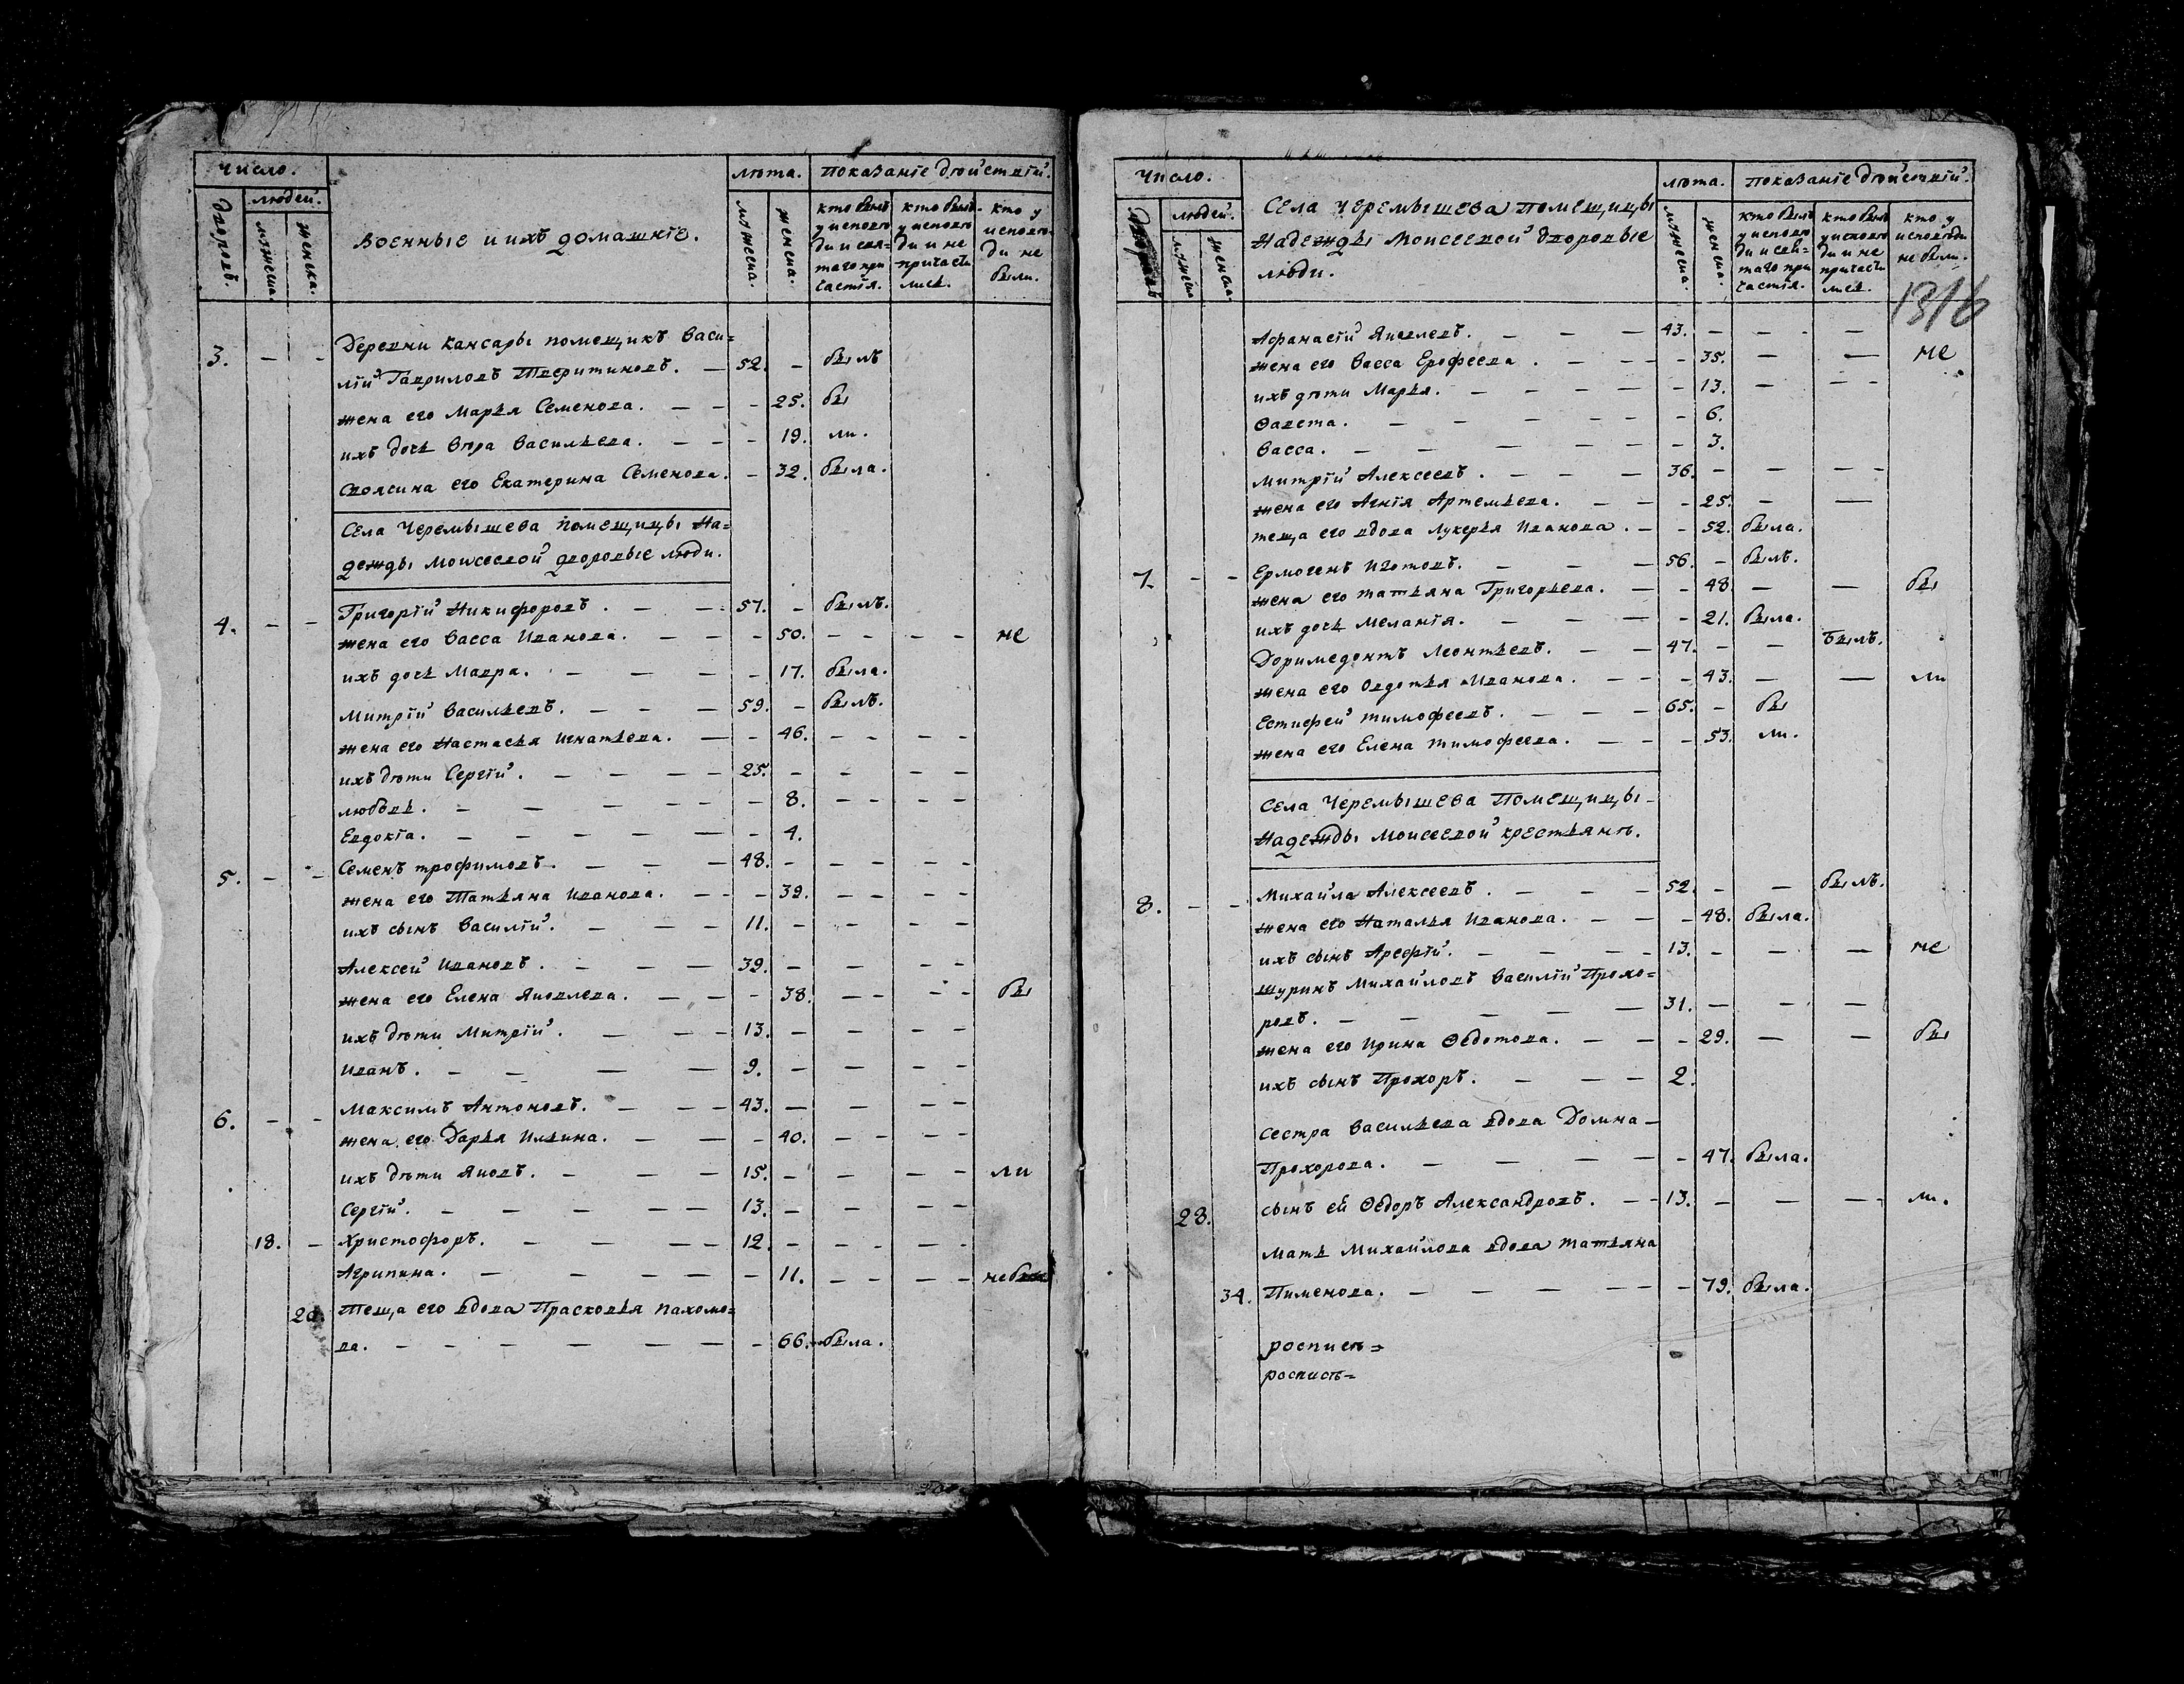 число.
людей.
дворовъ.
мужеска.
женска.
военные и ихъ домашніе.
лѣта.
мужеска.
женска.
показаніе дѣйствій.
кто былъ у исповѣди и святаго причастія.
кто былъ у исповѣди и не причастились.
кто у исповѣди не были.
3. — — Деревни Кансары помещикъ Васи=
лій Гавриловъ Тверитиновъ. — 52. — былъ
жена его Марья Семенова. — — — 25. бы
ихъ дочь Вѣра Васильева. — — — 19. ли.
своясина его Екатерина Семенова. — 32. была.
Села Черемышева помещицы На=
дежды Моисеевой дворовые люди.
4. — — Григорій Никифоровъ. — — 57. — былъ.
жена его Васса Иванова. — — — 50. — — — — не
ихъ дочь Мавра. — — — — 17. была.
Митрій Васильевъ. — — — 59. — былъ.
жена его Настасья Игнатьева. — — 46. — — — —
ихъ дѣти Сергій. — — — — 25. — — — —
любовь. — — — — — — 8. — — — —
Евдокія. — — — — — — 4.
5. — — Семенъ трофимовъ. — — — 48. — — — — —
жена его Татьяна Иванова. — — — 39. — — — —
ихъ сынъ Василій. — — — 11. — — — —
Алексей Ивановъ. — — — 39. — — — —
жена его Елена Яковлева. — — — 38. — — — — бы
ихъ дѣти Митрій. — — — 13. — — — —
Иванъ. — — — — 9. — — — —
6. — — Максимъ Антоновъ. — — — 43. — — — —
жена его Дарья Ильина. — — — 40. — — — —
ихъ дѣти Яковъ. — — — 15. — — — — ли
Сергій. — — — — — 13. — — — —
18. — Христофоръ. — — — — 12. — — — —
Агрипина. — — — — — 11. — — — — небы
20. Теща его вдова Прасковья Пахомо=
ва. — — — — — — — 66. была.
число.
людей.
мужеска
женска.
Села Черемышева помещицы
Надежды Моисеевой дворовые
люди.
лѣта.
мужеска.
женска.
показаніе дѣйствій.
кто былъ у исповѣди и святаго причастія.
кто былъ у исповѣди и не причастились.
кто у исповѣди не были.
1316
Афанасій Яковлевъ. — — — 43. — — — —
жена его Васса Ерофеева. — — — — 35. — — не
ихъ дѣти Марья. — — — — — 13. — — —
Ѳавста. — — — — — 6.
Васса. — — — — — — 3.
Митрій Алексеевъ. — — — 36. — — — —
жена его Агнія Артемьева. — — — 25. — —
теща его вдова Лукерья Иванова. — — 52. была.
7. — — Ермогенъ Изотовъ. — — — 56. — былъ.
жена его татьяна Григорьева. — — 48 — — бы
ихъ дочь Меланія. — — — — 21. была.
Доримедонтъ Леонтьевъ. — — 47. — — былъ.
жена его Овдотья Иванова. — — — 43. — — ли
Естифей тимофеевъ. — — — 65. — бы
жена его Елена тимофеева. — — — 53. ли.
Села Черемышева помещицы —
Надежды Моисеевой крестьянѣ.
8. — — Михайла Алексеевъ. — — — 52. — — былъ.
жена его Наталья Иванова. — — — 48. была.
ихъ сынъ Арефій. — — — — 13. — — — не
шуринъ Михайловъ Василій Прохо=
ровъ. — — — — — 31. — — —
жена его Ирина Ѳедотова. — — — 29. — — бы
ихъ сынъ Прохоръ. — — — 2.
Сестра Васильева вдова Домна —
Прохорова. — — — — — 47. была.
28. сынъ ей Ѳедоръ Александровъ. — — 13. — — — ли.
мать Михайлова вдова татьяна
34. Пименова. — — — — — — 79. была.
роспись=
роспись=